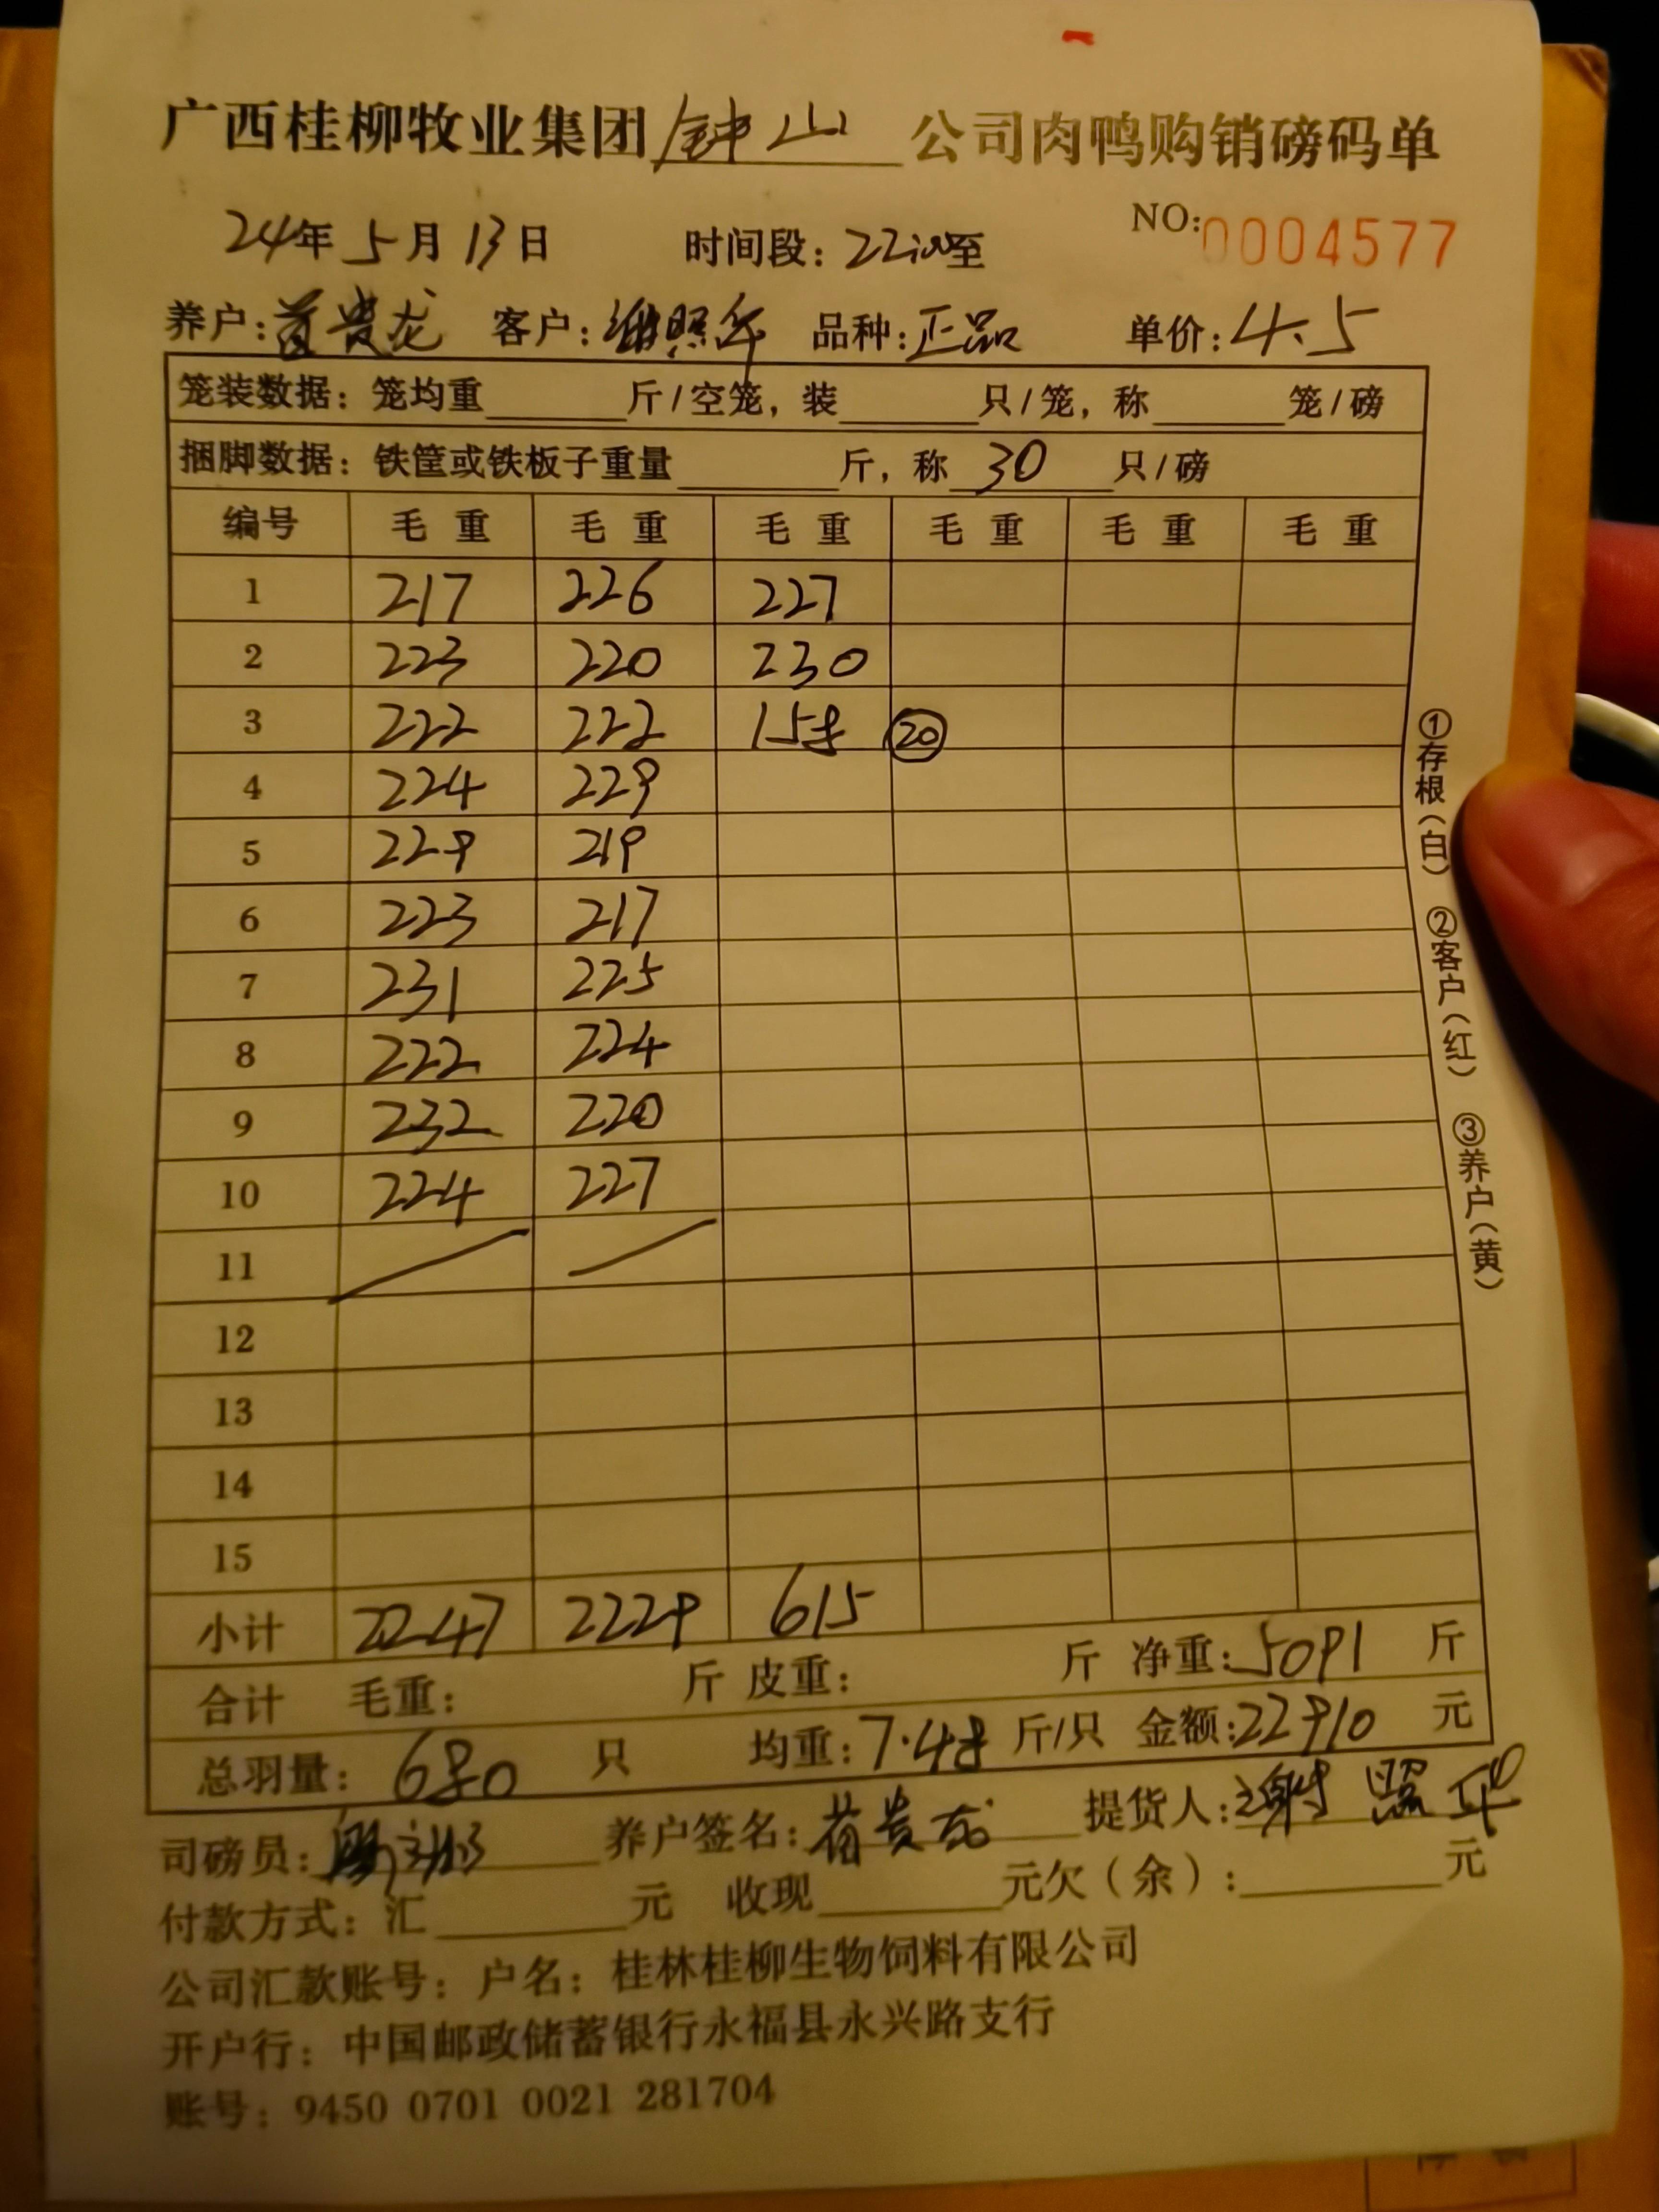 广西桂柳牧业集团钟山公司肉鸭购销磅码单
24年5月13日 时间段:22:00至 NO:0004577
养户:贵龙 客户: 品种:正品 单价:4.5
笼装数据:笼均重 斤/空笼,装 只/笼,称 笼/磅
捆脚数据:铁筐或铁板子重量 斤,称 30 只/磅
编号 毛重 毛重 毛重 毛重 毛重 毛重
1 217 226 227
2 223 220 230
3 222 222 158 ⑳
4 224 229
5 229 219
6 223 217
7 231 225
8 222 224
9 232 220
10 224 227
11
12
13
14
15
小计 2247 2229 615
合计 毛重: 斤 皮重: 斤 净重:5091 斤
总羽量:680 只 均重:7.48 斤/只 金额:22910 元
司磅员: 养户签名:贵龙 提货人:谢照
付款方式:汇 元 收现 元欠(余): 元
公司汇款账号:户名:桂林桂柳生物饲料有限公司
开户行:中国邮政储蓄银行永福县永兴路支行
账号:9450 0701 0021 281704
①存根(白) ②客户(红) ③养户(黄)